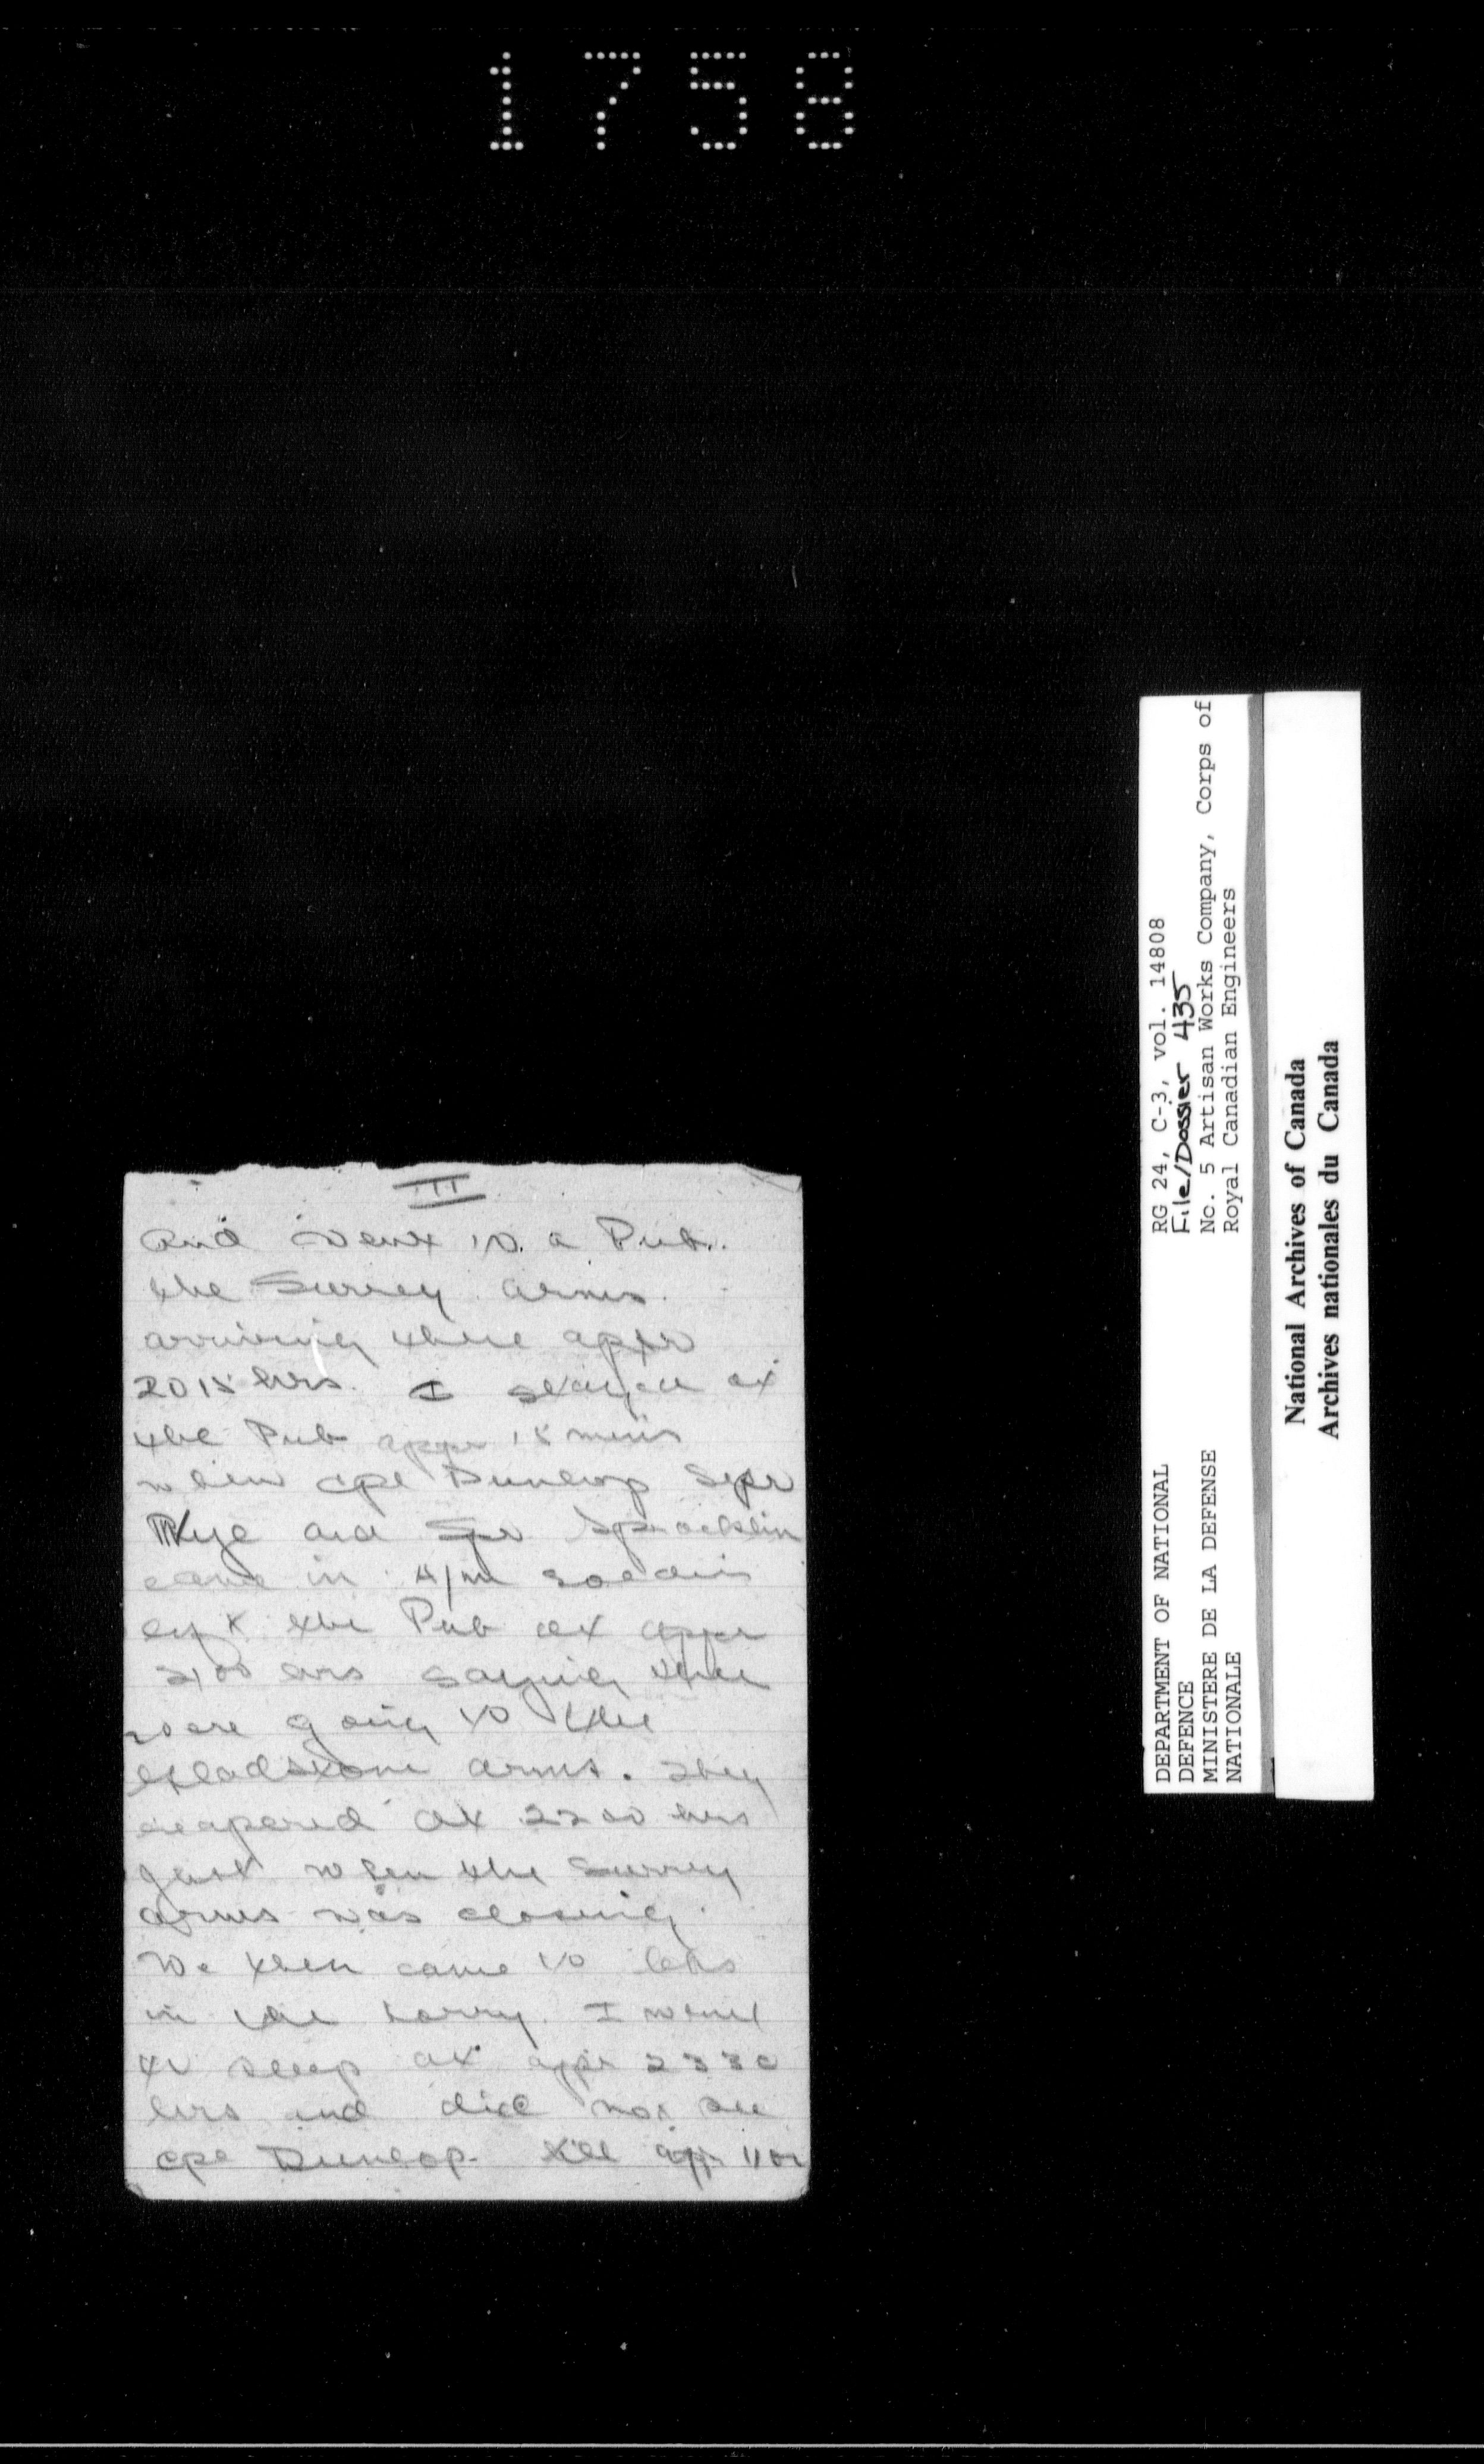 1758
III
and went to a Pub.
the Surrey arms.
arriving there appr
2015 hrs. I stayed at
the Pub appr 15 mins
when cpl Dunlop Spr
Nye and Spr Spracklin
came in. A/m soldiers
left the Pub at appr
2100 hrs saying they
were going to the
Gladstone arms. They
reapered at 2200 hrs
just when the Surrey
arms was closing.
We then came to
in the Lorry. I went
to sleep at appr 2330
hrs and did not see
cpl Dunlop till appr
RG 24, C-3, vol. 14808
File/Dossier 435
No. 5 Artisan Works Company, Corps of
Royal Canadian Engineers
DEPARTMENT OF NATIONAL
DEFENCE
MINISTERE DE LA DEFENSE
NATIONALE
National Archives of Canada
Archives nationales du Canada